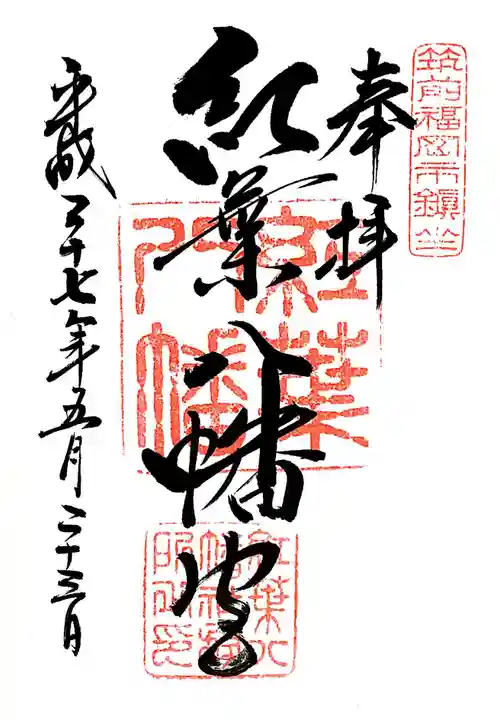 筑前福岡市鎮坐
奉拝
紅葉八幡宮
平成二十七年五月二十三日
紅葉
八幡
紅葉八
幡神社